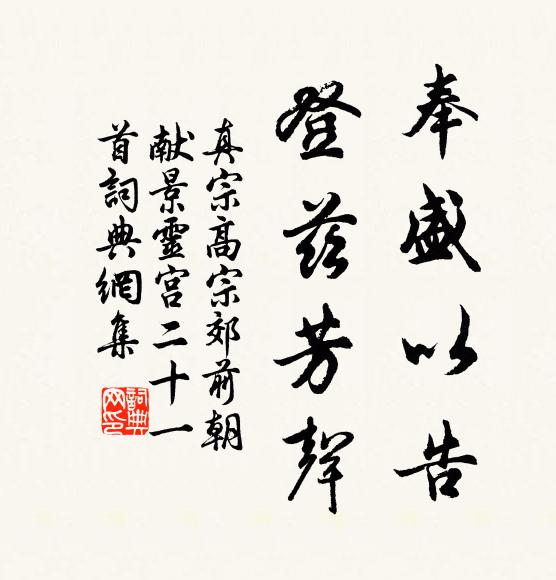 奉盛以告
登茲芳聲
真宗高宗郊前朝
献景靈宮二十一
首詞典網集
詞典网印